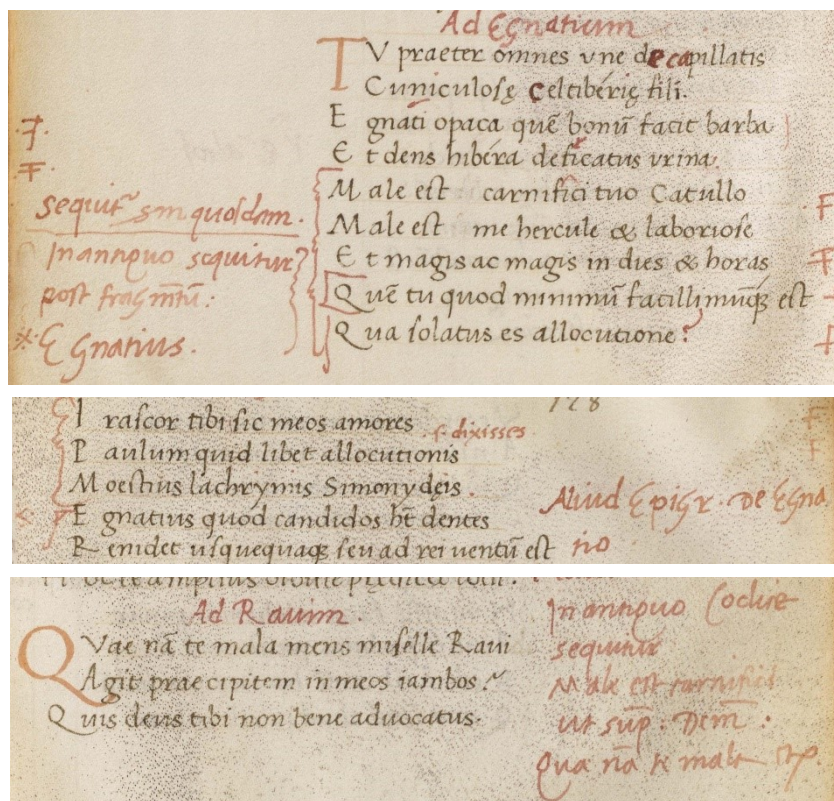 Ad Egnatium
TV praeter omnes vne de capillatis
Cuniculosę Celtiberię fili.
Egnati opaca quē bonū facit barba
Et dens hibera deficatus vrina.
Male est carnifici tuo Catullo
Male est me hercule & laboriose
Et magis ac magis in dies & horas
Quē tu quod minimū facillimūq; est
Qua solatus es allocutione?
sequit~ sm quosdam.
In antiquo sequitur
post fragm̄tū:
Egnatius.
128
Irascor tibi sic meos amores
Paulum quid libet allocutionis .s. dixisses
Moestius lachrymis Simonydęis.
Egnatius quod candidos ht̄ dentes
Renidet usquequaq; seu ad rei ventū est
Aliud Epigr. De Egna
tio
Ad Rauim.
QVae nā te mala mens miselle Raui
Agit praecipitem in meos iambos?
Quis deus tibi non bene advocatus.
In antiquo Codice
sequitur
Male est carnifici
ut sup̄:
Qua nā te mala